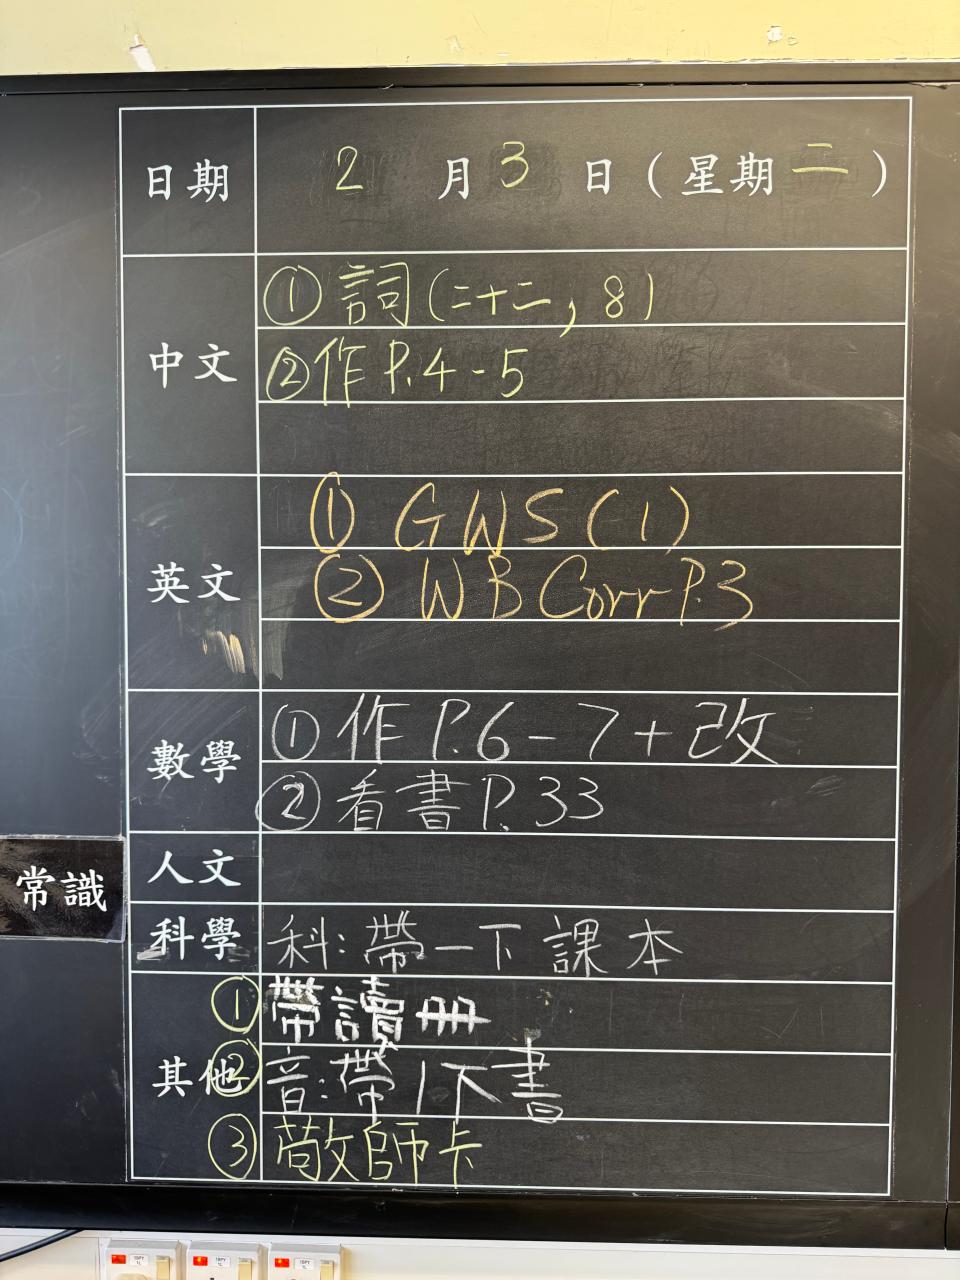 日期 2月3日(星期二)
中文 ①詞(二十二,8)
②作P.4-5
英文 ① GWS(1)
② WB Corr P.3
數學 ①作P.6-7+改
②看書P.33
人文
常識
科學 科:帶一下課本
其他 ①帶讀冊
②音:帶1下書
③敬師卡